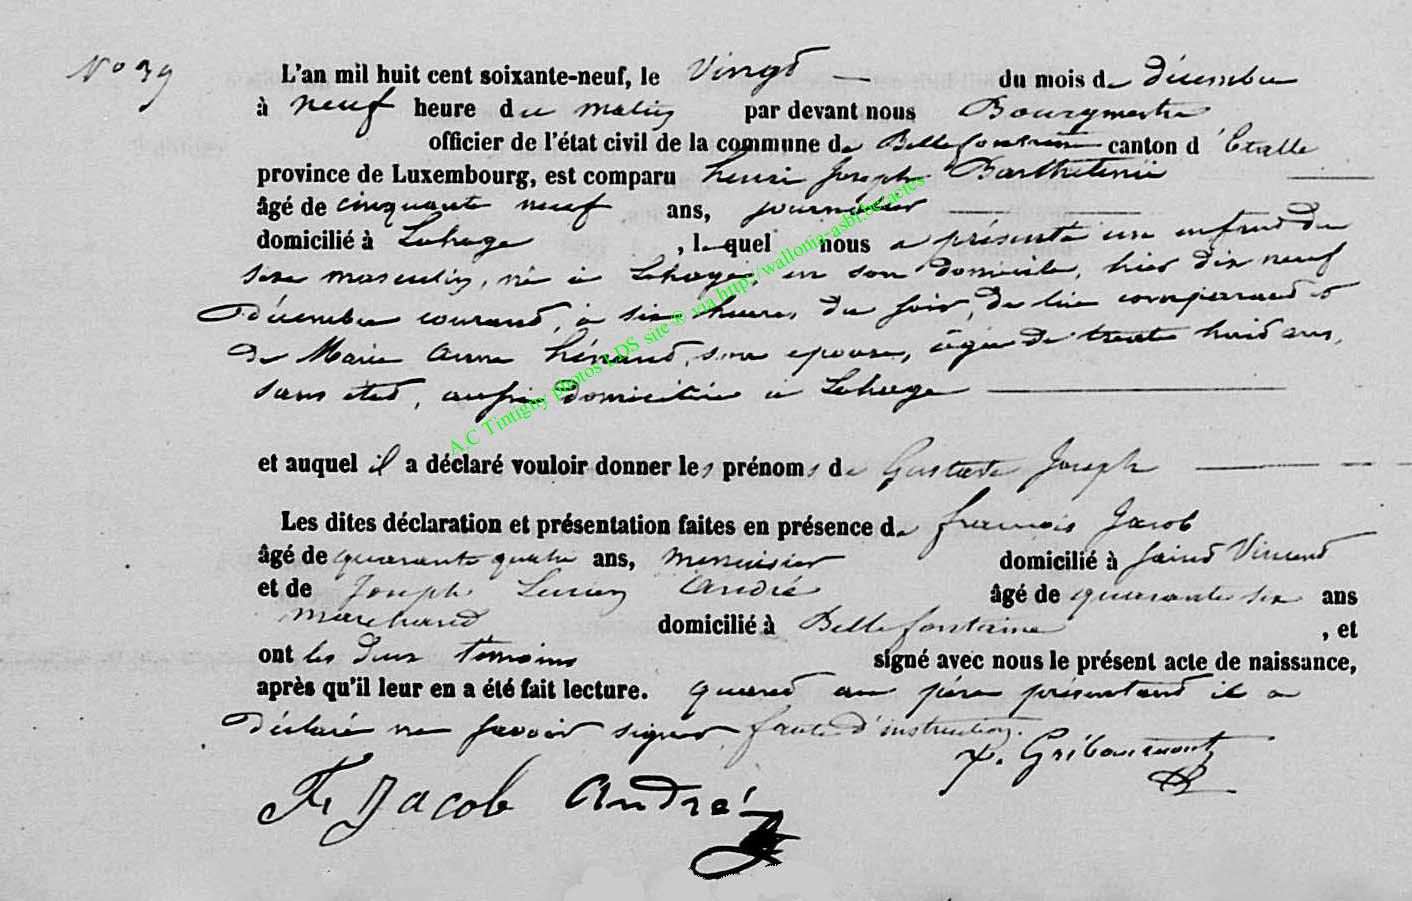 N° 39
L'an mil huit cent soixante-neuf, le Vingt du mois de décembre
à neuf heure du matin par devant nous Bourgmestre
officier de l'état civil de la commune de Bellefontaine canton d'Etalle
province de Luxembourg, est comparu henri Joseph
âgé de cinquante neuf ans, journalier
domicilié à Lahage, lequel nous a présenté un enfant du
sexe masculin, né à Lahage, en son domicile, hier dix neuf
Décembre courant, à six heures du soir, de lui comparant et
de Marie Anne son epouse, âgée de trente huit ans,
sans état, aussi domiciliée à Lahage
et auquel il a déclaré vouloir donner les prénoms de Gustave Joseph
Les dites déclaration et présentation faites en présence de francois Jacob
âgé de quarante quatre ans, menuisier domicilié à Saint Vincent
et de Joseph Lucien André âgé de quarante six ans
marchand domicilié à Bellefontaine, et
ont les deux temoins signé avec nous le présent acte de naissance,
après qu'il leur en a été fait lecture. quant au père présentant il a
déclaré ne savoir signer faute d'instruction.
Gribaumont
Fs Jacob André
A.C Tintigny photos LDS site ® via http://wallonia-asbl.be/actes